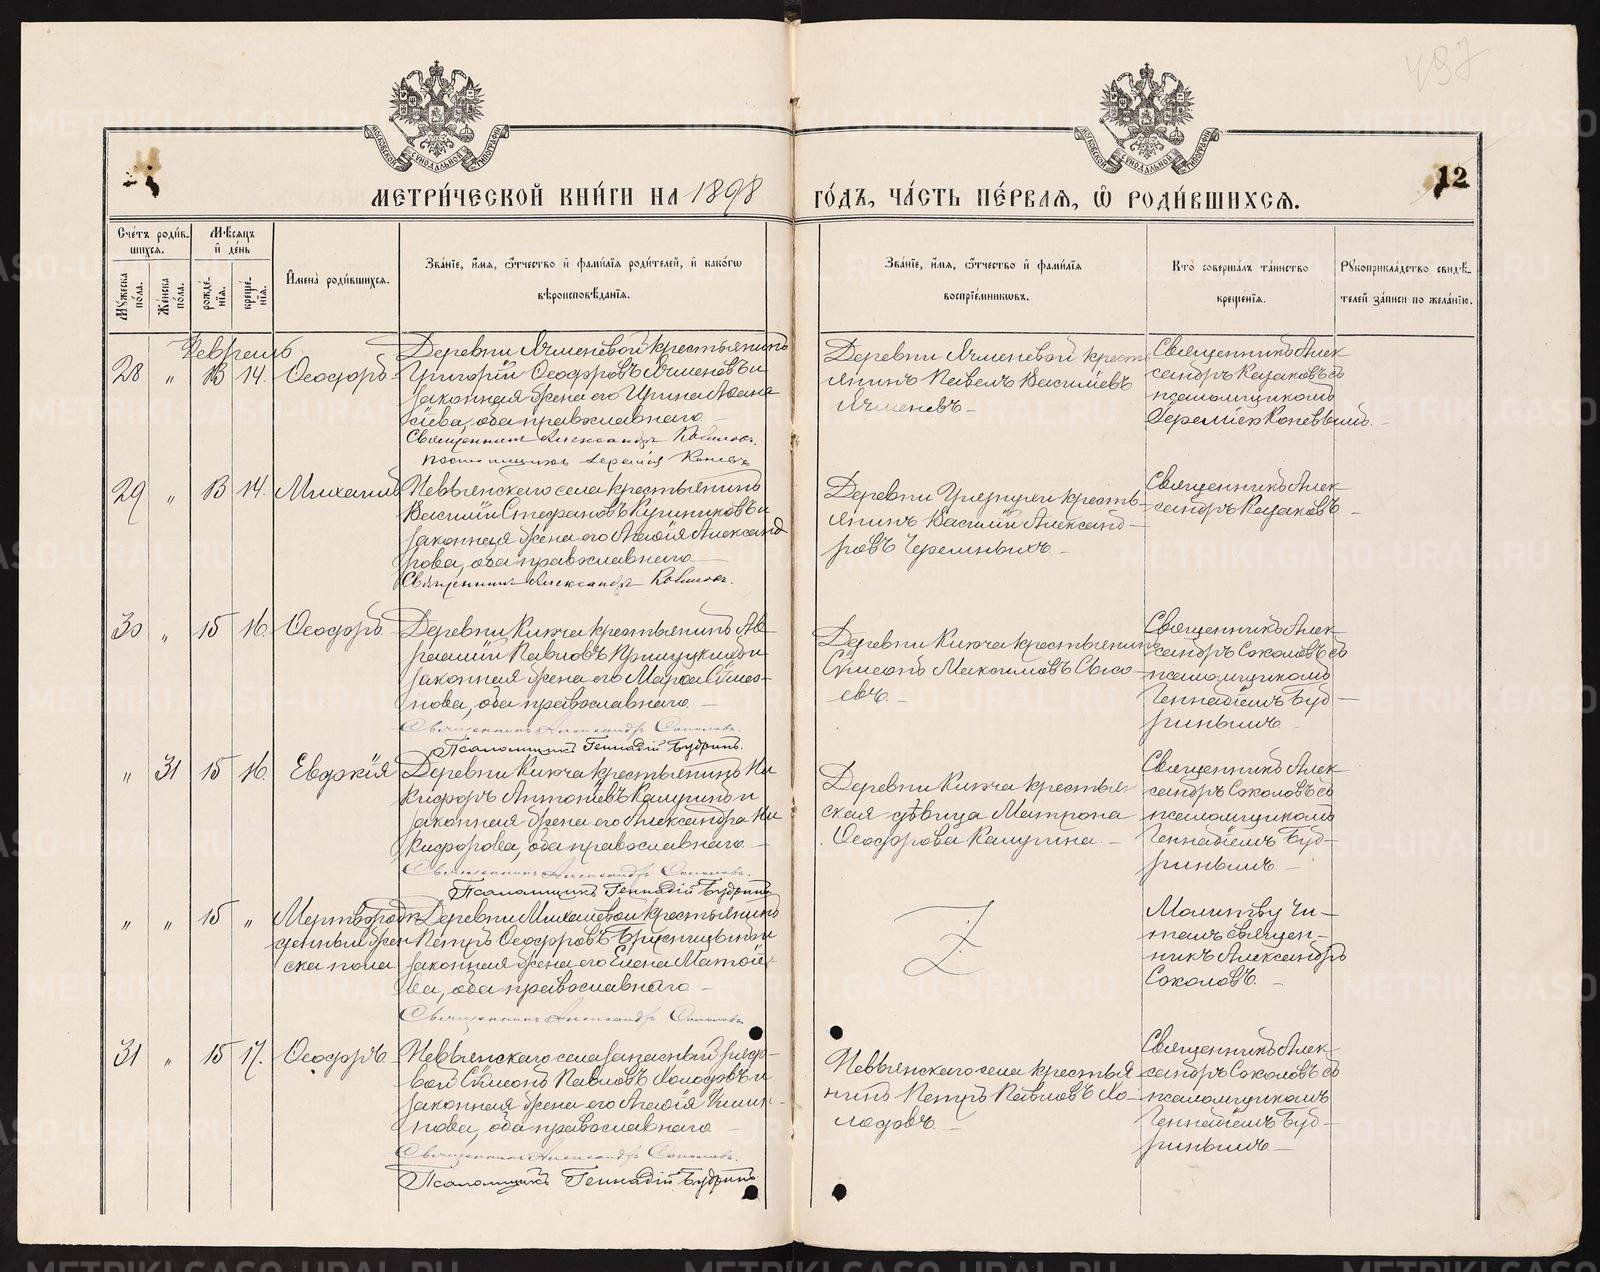 497
12
МЕТРИ́ЧЕСКОЙ КНИ́ГИ НА 1898 ГО́ДЪ, ЧА́СТЬ ПЕ́РВАЯ, Ѿ РОДИ́ВШИХСЯ.
Сче́тъ роди́в-
шихся.
Му́жеска по́ла.
Же́нска по́ла.
Мѣ́сяцъ
и҆ де́нь
рожде́-
нїѧ.
креще́-
нїѧ.
И҆мена̀ роди́вшихсѧ.
Зва́нїе, и҆́мѧ, ѻ҆́тчество и҆ фами́лїѧ роди́телей, и҆ како́гѡ
вѣроисповѣ́данїѧ.
Зва́нїе, и҆́мѧ, ѻ҆́тчество и҆ фами́лїѧ
воспрїе́мникѡвъ.
Кто̀ соверша́лъ та́инство
креще́нїѧ.
Рꙋкоприкла́дство свидѣ́-
телей за́писи по жела́нїю.
Февраль
28 " 13 14. Ѳеодоръ
Деревни Ячменевой крестьянинъ
Григорій Ѳеодоровъ Ячменевъ и
законная жена его Ирина Аѳана
сіева, оба православнаго
Священникъ Александръ
Псаломщикъ Іеремія
Деревни Ячменевой кресть
янинъ Павелъ Василіевъ
Ячменевъ
Священникъ Алек
сандръ Казаковъ съ
псаломщикомъ
Іереміею
29 " 13 14. Михаилъ
Невьянскаго села крестьянинъ
Василій Стефановъ и
законная жена его Агаѳія Александ
рова, оба православнаго
Священникъ Александръ
Деревни крестьъ-
янинъ Василій Александ-
ровъ Черемныхъ
Священникъ Алек
сандръ Казаковъ
30 " 15 16. Ѳеодоръ
Деревни крестьянинъ Ав
раамій Павловъ и
законная жена его Марѳа Сѵмео-
нова, оба православнаго
Священникъ Александръ Соколовъ.
Псаломщикъ Геннадій Будринъ.
Деревни крестьянинъ
Сѵмеонъ Максимовъ Сысо
евъ.
Священникъ Алек
сандръ Соколовъ съ
псаломщикомъ
Геннадіемъ Буд-
ринымъ
" 31 15 16. Евдокія
Деревни крестьянинъ Ни
кифоръ Антоніевъ Калугинъ и
законная жена его Александра Ни
кифорова, оба православнаго
Священникъ Александръ Соколовъ.
Псаломщикъ Геннадій Будринъ
Деревни крестьян
ская дѣвица Матрона
Ѳеодорова Калугина
Священникъ Алек
сандръ Соколовъ съ
псаломщикомъ
Геннадіемъ Буд-
ринымъ
" " 15 " Мертворож
денный жен
ска пола
Деревни Михалевой крестьянинъ
Петръ Ѳеодоровъ Брусницынъ и
законная жена его Елена Матѳіе
ва, оба православнаго
Священникъ Александръ Соколовъ
Z
Молитву чи-
талъ священ-
никъ Александръ
Соколовъ.
31 " 15 17. Ѳеодоръ
Невьянскаго села запасный рядо-
вой Сѵмеонъ Павловъ Холодовъ и
законная жена его Агаѳія
нова, оба православнаго
Священникъ Александръ Соколовъ.
Псаломщикъ Геннадій Будринъ
Невьянскаго села крестья
нинъ Петръ Павловъ Хо-
лодовъ.
Священникъ Алек-
сандръ Соколовъ съ
псаломщикомъ
Геннадіемъ Буд-
ринымъ
METRIKI.GASO-URAL.RU